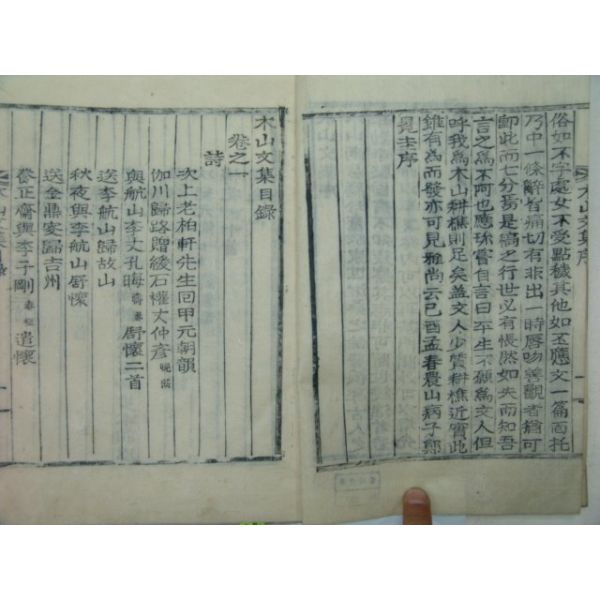 俗如不字處女不受點穢其他如丕應文一篇西托
乃中一條辭旨痛切有非出一時唇吻善觀者猶可
即此而七分焉是稿之行世必有悵然如失而知吾
言之爲不阿也應琉嘗自言曰平生不願爲文人但
呼我爲木山耕樵則足矣盖文人少質耕樵近實此
雖有爲而發亦可見雅尚云己酉孟春農山病子鄭
冕圭序
木山文集序
木山文集目錄
卷之一
詩
次上老柏軒先生回甲元朝韻
伽川歸路贈綾石權丈仲彦
與航山李丈孔晦舒懷二首
送李航山歸故山
秋夜與李航山舒懷
送金鼎家歸吉州
養正齋與李子剛遣懷
木山文集